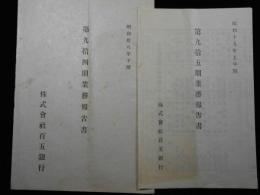 昭和十九年上半期
第九拾五期業務報告書
株式會社百五銀行
昭和拾八年下期
第九拾四期業務報告書
株式會社百五銀行